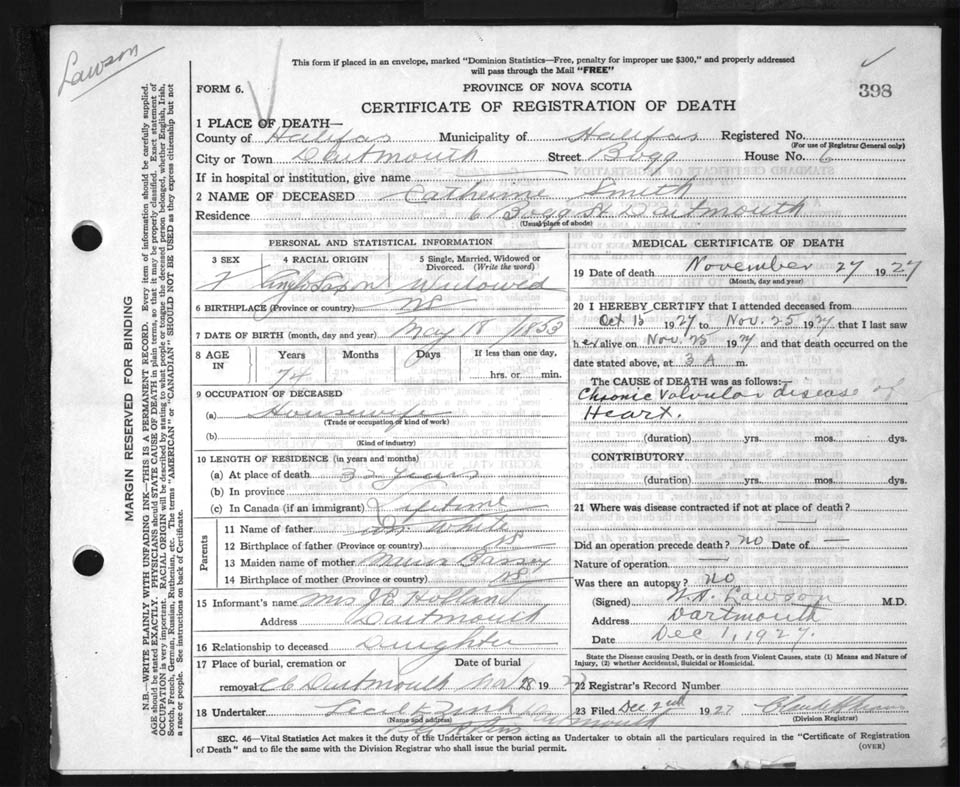 Lawson
This form if placed in an envelope, marked "Dominion Statistics—Free, penalty for improper use $300," and properly addressed
will pass through the Mail "FREE"
FORM 6.
PROVINCE OF NOVA SCOTIA
398
CERTIFICATE OF REGISTRATION OF DEATH
1 PLACE OF DEATH—
County of Halifax Municipality of Halifax Registered No.
(For use of Registrar General only)
City or Town Dartmouth Street Bogg House No. 6
If in hospital or institution, give name
2 NAME OF DECEASED Catherine Smith
Residence 6 Bogg St Dartmouth
(Usual place of abode)
PERSONAL AND STATISTICAL INFORMATION
3 SEX 4 RACIAL ORIGIN 5 Single, Married, Widowed or
Divorced. (Write the word)
F Anglo Saxon Widowed
6 BIRTHPLACE (Province or country) NS
7 DATE OF BIRTH (month, day and year) May 18 1853
8 AGE IN Years Months Days If less than one day,
74 hrs. or min.
9 OCCUPATION OF DECEASED
(a) Housewife
(Trade or occupation or kind of work)
(b)
(Kind of industry)
10 LENGTH OF RESIDENCE (in years and months)
(a) At place of death 32 years
(b) In province
(c) In Canada (if an immigrant) Lifetime
Parents
11 Name of father White
12 Birthplace of father (Province or country) NS
13 Maiden name of mother
14 Birthplace of mother (Province or country) NS
15 Informant's name Mrs J E Holland
Address Dartmouth
16 Relationship to deceased Daughter
17 Place of burial, cremation or Date of burial
removal Dartmouth Nov 28 1927
18 Undertaker Dartmouth
(Name and address)
MEDICAL CERTIFICATE OF DEATH
19 Date of death November 27 1927
(Month, day and year)
20 I HEREBY CERTIFY that I attended deceased from
Oct 15 1927 to Nov. 25 1927 that I last saw
her alive on Nov. 25 1927 and that death occurred on the
date stated above, at 3 A m.
The CAUSE of DEATH was as follows:—
Chronic Valvular disease of
Heart.
(duration) yrs. mos. dys.
CONTRIBUTORY
(duration) yrs. mos. dys.
21 Where was disease contracted if not at place of death?
—
Did an operation precede death? no Date of —
Nature of operation —
Was there an autopsy? no
(Signed) Lawson M.D.
Address Dartmouth
Date Dec 1, 1927.
State the Disease causing Death, or in death from Violent Causes, state (1) Means and Nature of
Injury, (2) whether Accidental, Suicidal or Homicidal.
22 Registrar's Record Number
23 Filed Dec 2nd 1927
(Division Registrar)
SEC. 46—Vital Statistics Act makes it the duty of the Undertaker or person acting as Undertaker to obtain all the particulars required in the "Certificate of Registration
of Death" and to file the same with the Division Registrar who shall issue the burial permit.
(OVER)
MARGIN RESERVED FOR BINDING
N.B.—WRITE PLAINLY WITH UNFADING INK—THIS IS A PERMANENT RECORD. Every item of information should be carefully supplied.
AGE should be stated EXACTLY. PHYSICIANS should STATE CAUSE OF DEATH in plain terms, so that it may be properly classified. Exact statement of
OCCUPATION is very important. RACIAL ORIGIN will be described by stating to what people or tongue the deceased person belonged, whether English, Irish,
Scotch, French, German, Russian, Ruthenian, etc. The terms "AMERICAN" or "CANADIAN" SHOULD NOT BE USED as they express citizenship but not
a race or people. See instructions on back of Certificate.